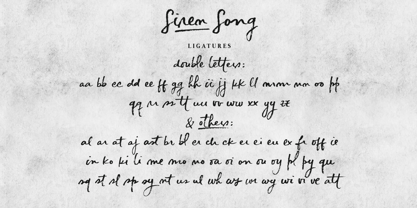 Siren Song
LIGATURES
double letters:
aa bb cc dd ee ff gg hh ii jj kk ll mm nn oo pp
qq rr ss tt uu vv ww xx yy zz
& others:
al ar at aj ast br bl er ch ck er ei eu ex fr off ie
in ko ki li me mo no oa oi on ou oy pl py qu
sq st sl sp sy nt us ul wh ws wr wy wi vi ve att